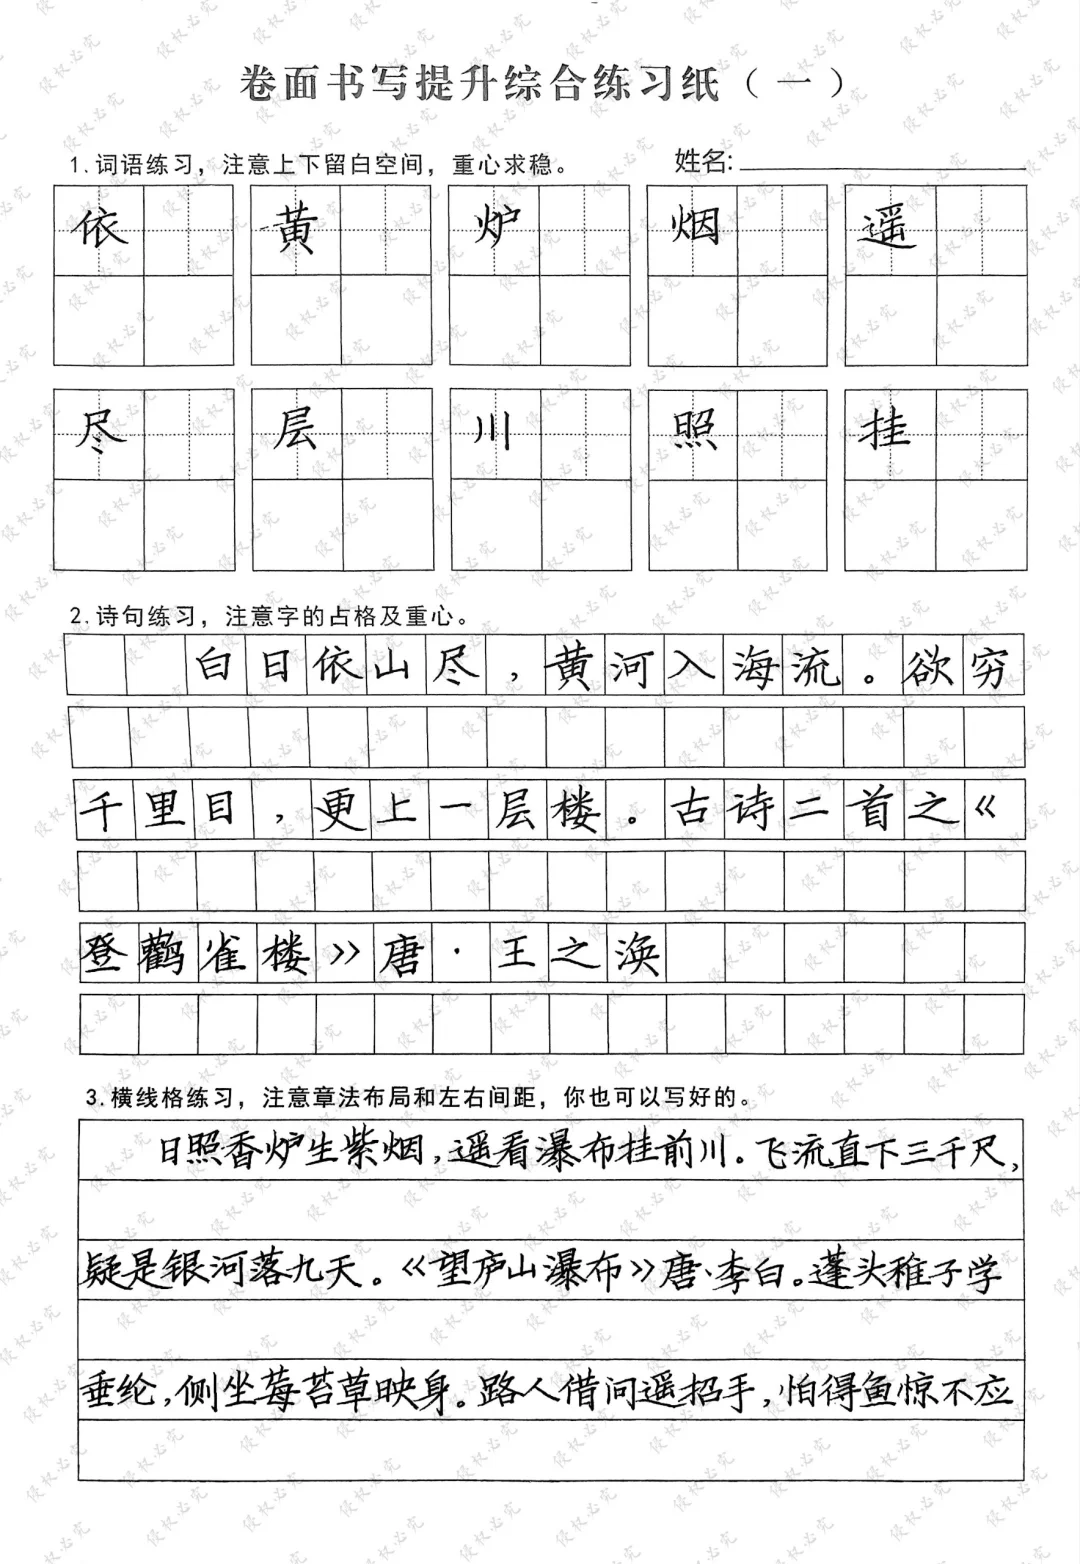 卷面书写提升综合练习纸（一）
1.词语练习，注意上下留白空间，重心求稳。 姓名:
依 黄 炉 烟 遥
尽 层 川 照 挂
2.诗句练习，注意字的占格及重心。
白日依山尽，黄河入海流。欲穷
千里目，更上一层楼。古诗二首之《
登鹳雀楼》唐·王之涣
3.横线格练习，注意章法布局和左右间距，你也可以写好的。
日照香炉生紫烟，遥看瀑布挂前川。飞流直下三千尺，
疑是银河落九天。《望庐山瀑布》唐·李白。蓬头稚子学
垂纶，侧坐莓苔草映身。路人借问遥招手，怕得鱼惊不应
侵权必究